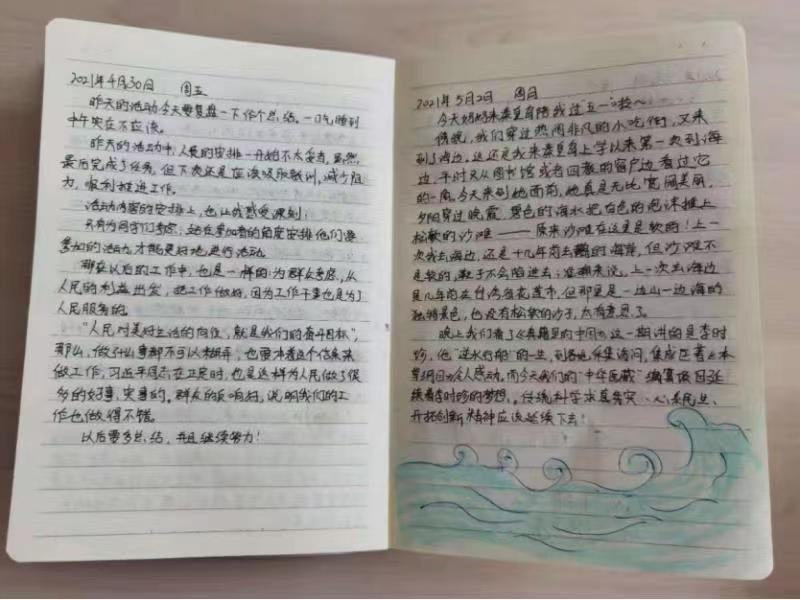 2021年4月30日 周五
昨天的活动今天要复盘一下,作个总结,一口气睡到
中午实在不应该。
昨天的活动中,人员的安排一开始不太妥当,虽然
最后完成了任务,但下次还是应该吸取教训,减少阻
力,顺利推进工作。
活动内容的安排上,也让我感受深刻:
只有为同学们考虑,站在参加者的角度安排他们想
参加的活动,才能更好地进行活动。
那在以后的工作中,也是一样的:为群众考虑,从
人民的利益出发,把工作做好,因为工作干事也是为了
人民服务的。
“人民对美好生活的向往,就是我们的奋斗目标”,
那么,做了什么事都不可以糊弄,也要本着这个信条来
做工作,习近平同志在正定时,也是这样为人民做了很
多的好事,实事的。群众的反响好,说明我们的工
作也做得不错。
以后要多总结,并且继续努力!
2021年5月2日 周日
今天妈妈来秦皇岛陪我过“五一”啦~
傍晚,我们穿过热闹非凡的小吃街,又来
到了海边,这还是我来秦皇岛上学以来第一次到海
边,平时只从图书馆或者回教的窗户边看过它
的一角。今天来到她面前,她真是无比宽阔美丽,
夕阳穿过晚霞,黑色的海水把白色的泡沫推上
松软的沙滩——原来沙滩在这里是软的!上一
次我去海边,还是十几年前去的海岸,但沙滩不
是软的,鞋子不会陷进去;准确来说,上一次去海边
是几年前在台湾省花莲市,但那里是一边山一边海的
独特景色,也没有松软的沙子,太有意思了。
晚上我们看了《典籍里的中国》,这一期讲的是李时
珍,他“逆水行舟”的一生,到各地采集访问,集成巨著《本
草纲目》令人感动。而今天我们的“中华医藏”编纂项目延
续着李时珍的梦想。传统科学求真务实、心系民生、
开拓创新精神应该延续下去!